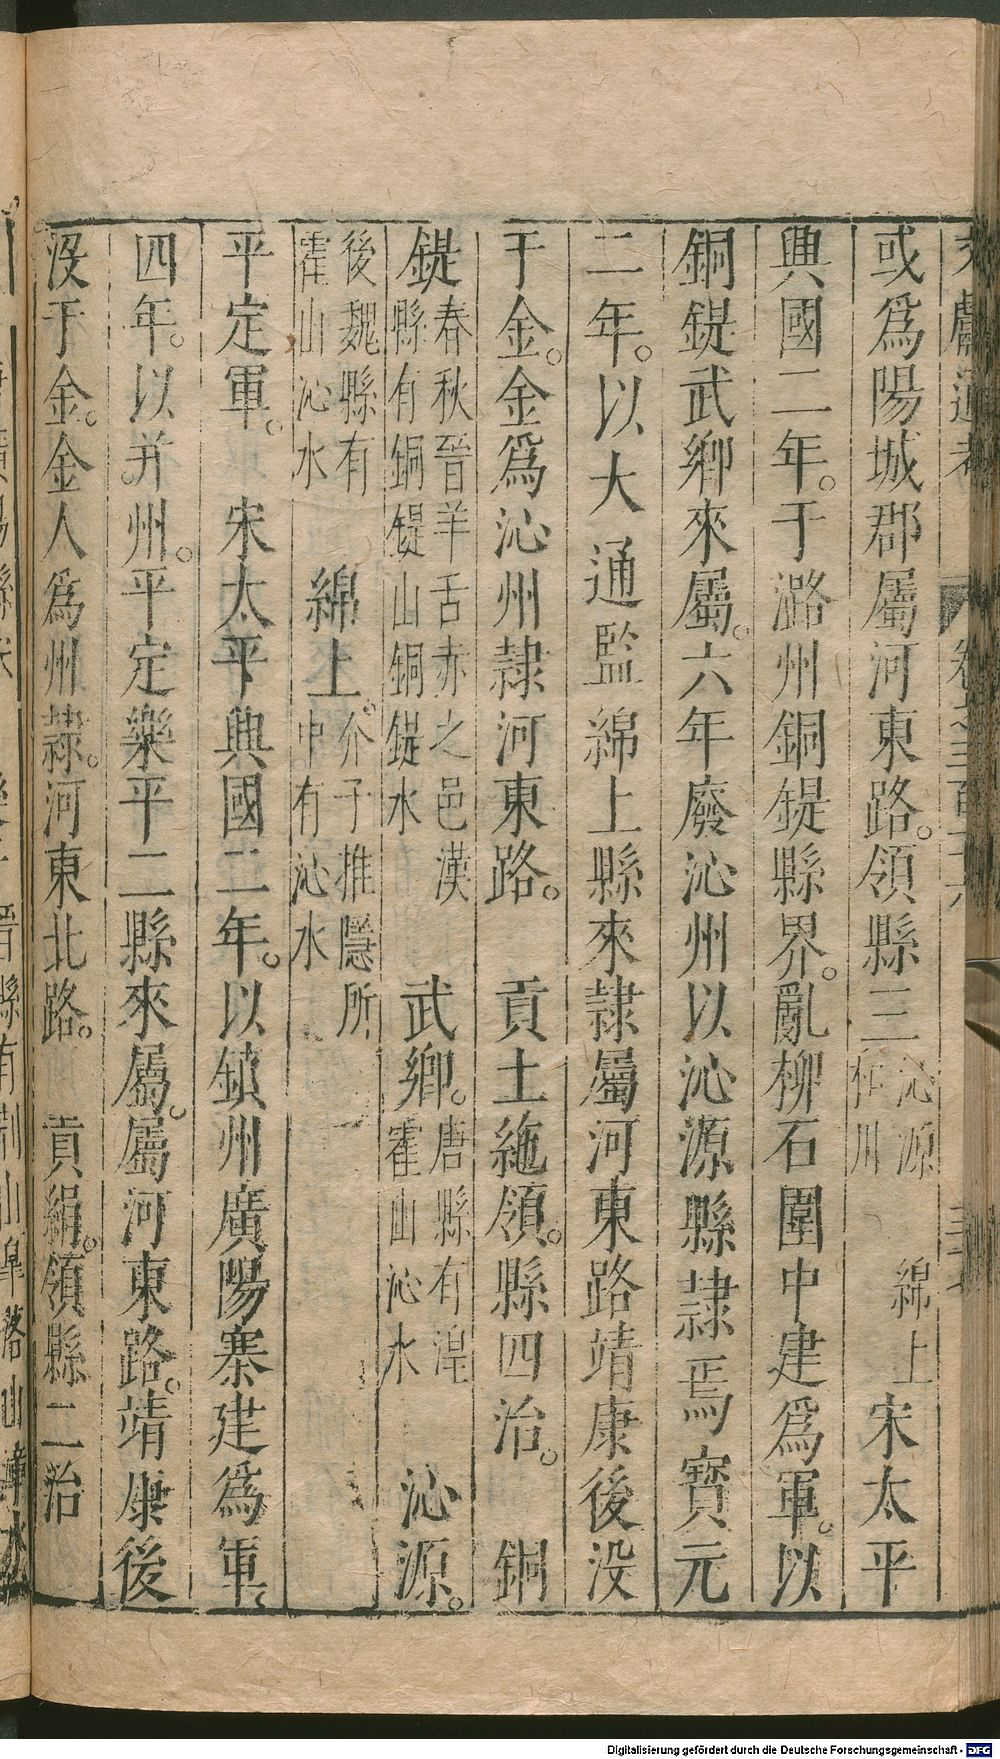 或爲陽城郡屬河東路。領縣三沁源和川 綿上宋太平
興國二年。于潞州銅鍉縣界。亂柳石圍中建爲軍。以
銅鍉武鄉來屬。六年廢沁州以沁源縣隷焉寶元
二年。以大通監綿上縣來隷屬河東路靖康後没
于金。金爲沁州隷河東路。 貢土絁領。縣四治。 銅
鍉春秋晉羊舌赤之邑漢縣有銅鍉山銅鍉水 武鄉。唐縣有湟霍山沁水 沁源。
後魏縣有霍山沁水 綿上。介子推隱所中有沁水
平定軍。 宋太平興國二年。以鎮州廣陽寨建爲軍。
四年。以并州。平定樂平二縣來屬。屬河東路。靖康後
没于金。金人爲州隷。河東北路。 貢絹。領縣二治
Digitalisierung gefördert durch die Deutsche Forschungsgemeinschaft - DFG